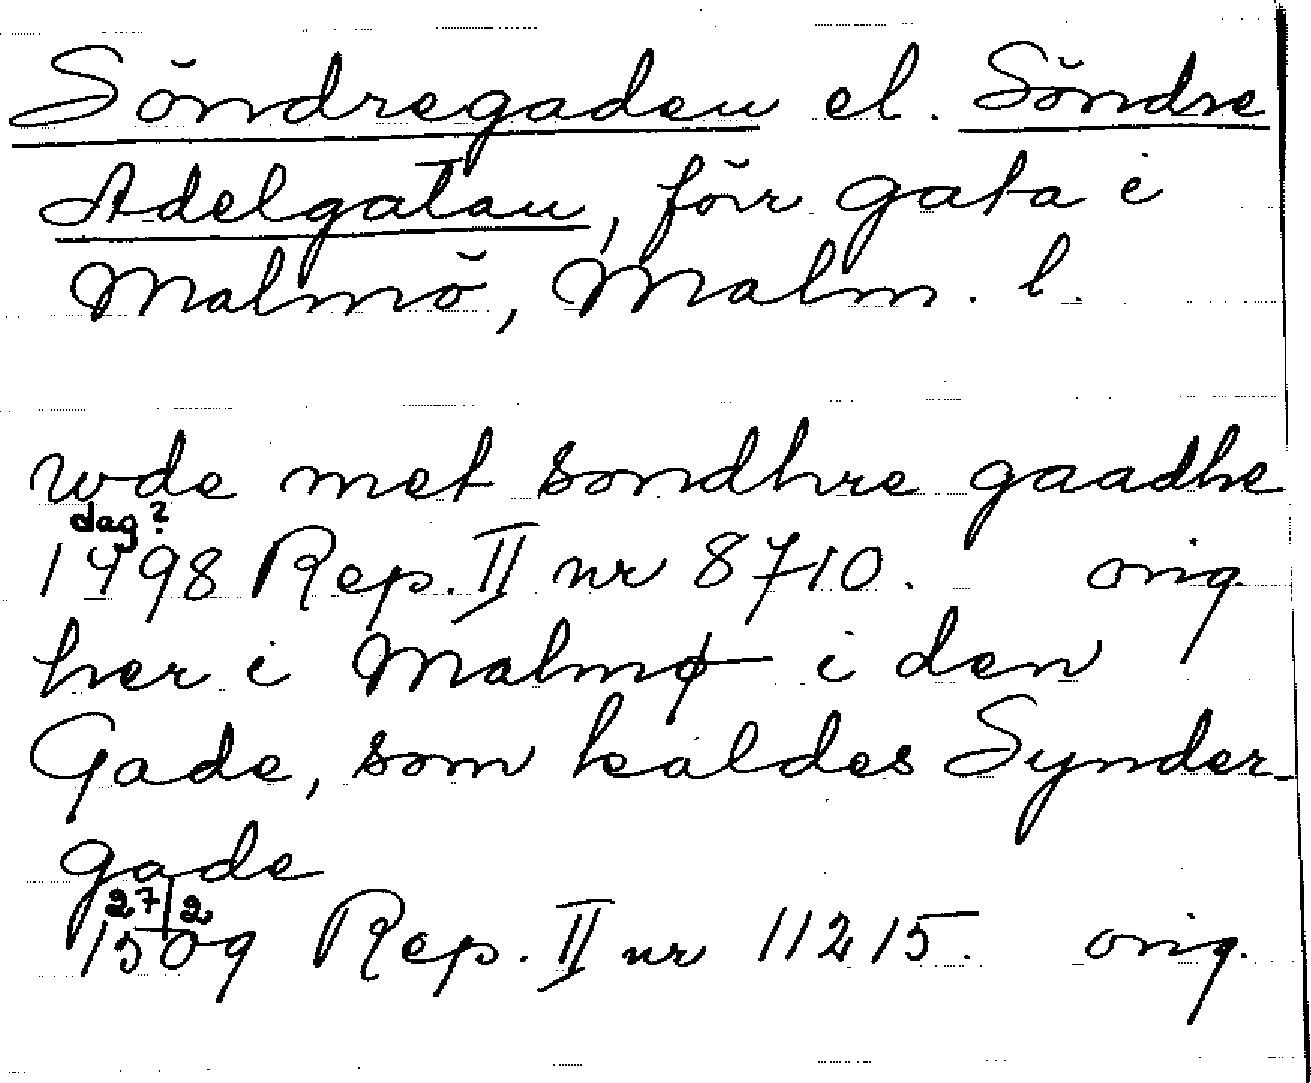 Söndregaden el. Söndre
Adelgatan, förr gata i
Malmö, Malm. l.
wde met søndhre gaadhe
dag?
1498 Rep. II nr 8710. orig
her i Malmø i den
Gade, som kaldes Synder-
gade
27/2
1509 Rep. II nr 11215. orig.